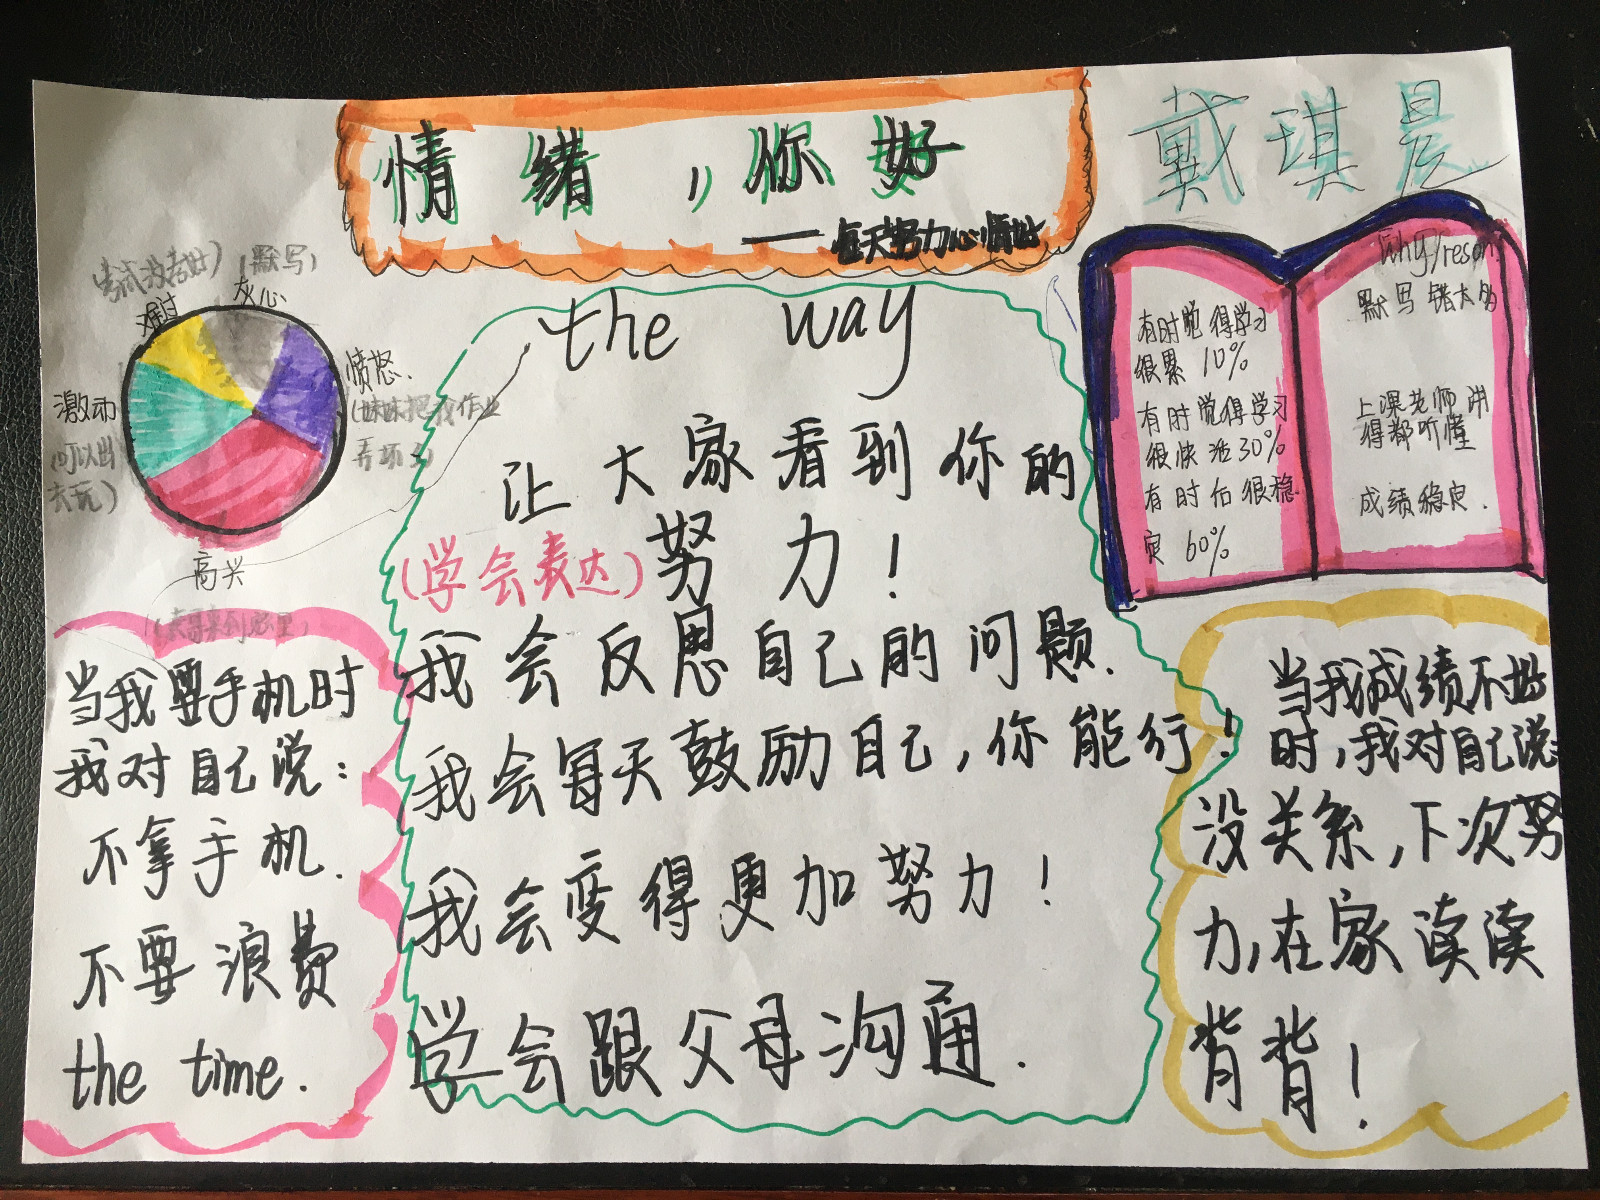 情绪，你好
——每天努力心情好
戴琪晨
考试没考好）
（默写）
难过
灰心
愤怒.
（妹妹把我作业
弄坏了
激动
（可以出
去玩）
高兴
the way
让大家看到你的
（学会表达）努力！
我会反思自己的问题.
我会每天鼓励自己，你能行！
我会变得更加努力！
学会跟父母沟通.
有时觉得学习
很累 10%
有时觉得学习
很快活30%
有时后很稳
定 60%
Why/reson
默写错太多
上课老师讲
得都听懂
成绩稳定.
当我要手机时
我对自己说：
不拿手机.
不要浪费
the time.
当我成绩不好
时，我对自己说：
没关系，下次努
力，在家读读
背背！